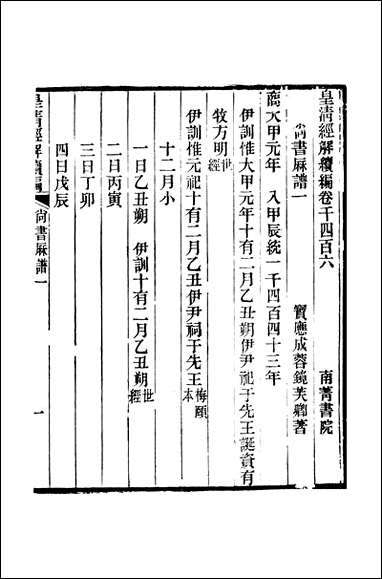 皇清經解續編卷千四百六
南菁書院
尚書厤譜一
寶應成蓉鏡芙卿著
商太甲元年 入甲辰統一千四百四十三年
伊訓惟太甲元年十有二月乙丑朔伊尹祀于先王誕資有
牧方明世經
伊訓惟元祀十有二月乙丑伊尹祠于先王梅頤本
十二月小
一日乙丑朔 伊訓十有二月乙丑朔世經
二日丙寅
三日丁卯
四日戊辰
皇清經解續編
尚書厤譜一
一